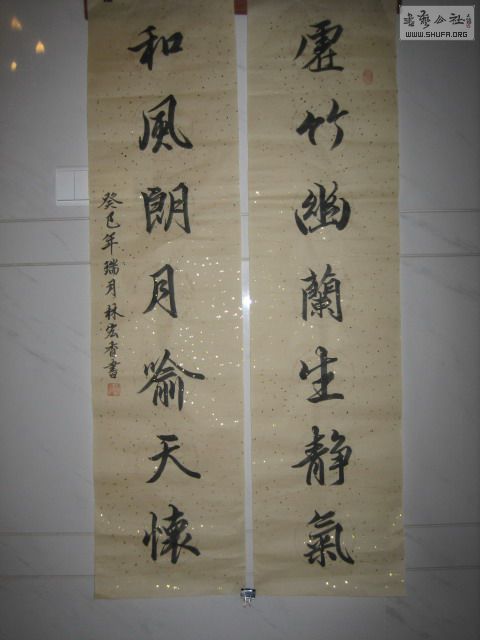 虚竹幽蘭生静氣
和風朗月喻天懷
癸巳年瑞月林宏香書
書藝公社
WWW.SHUFA.ORG